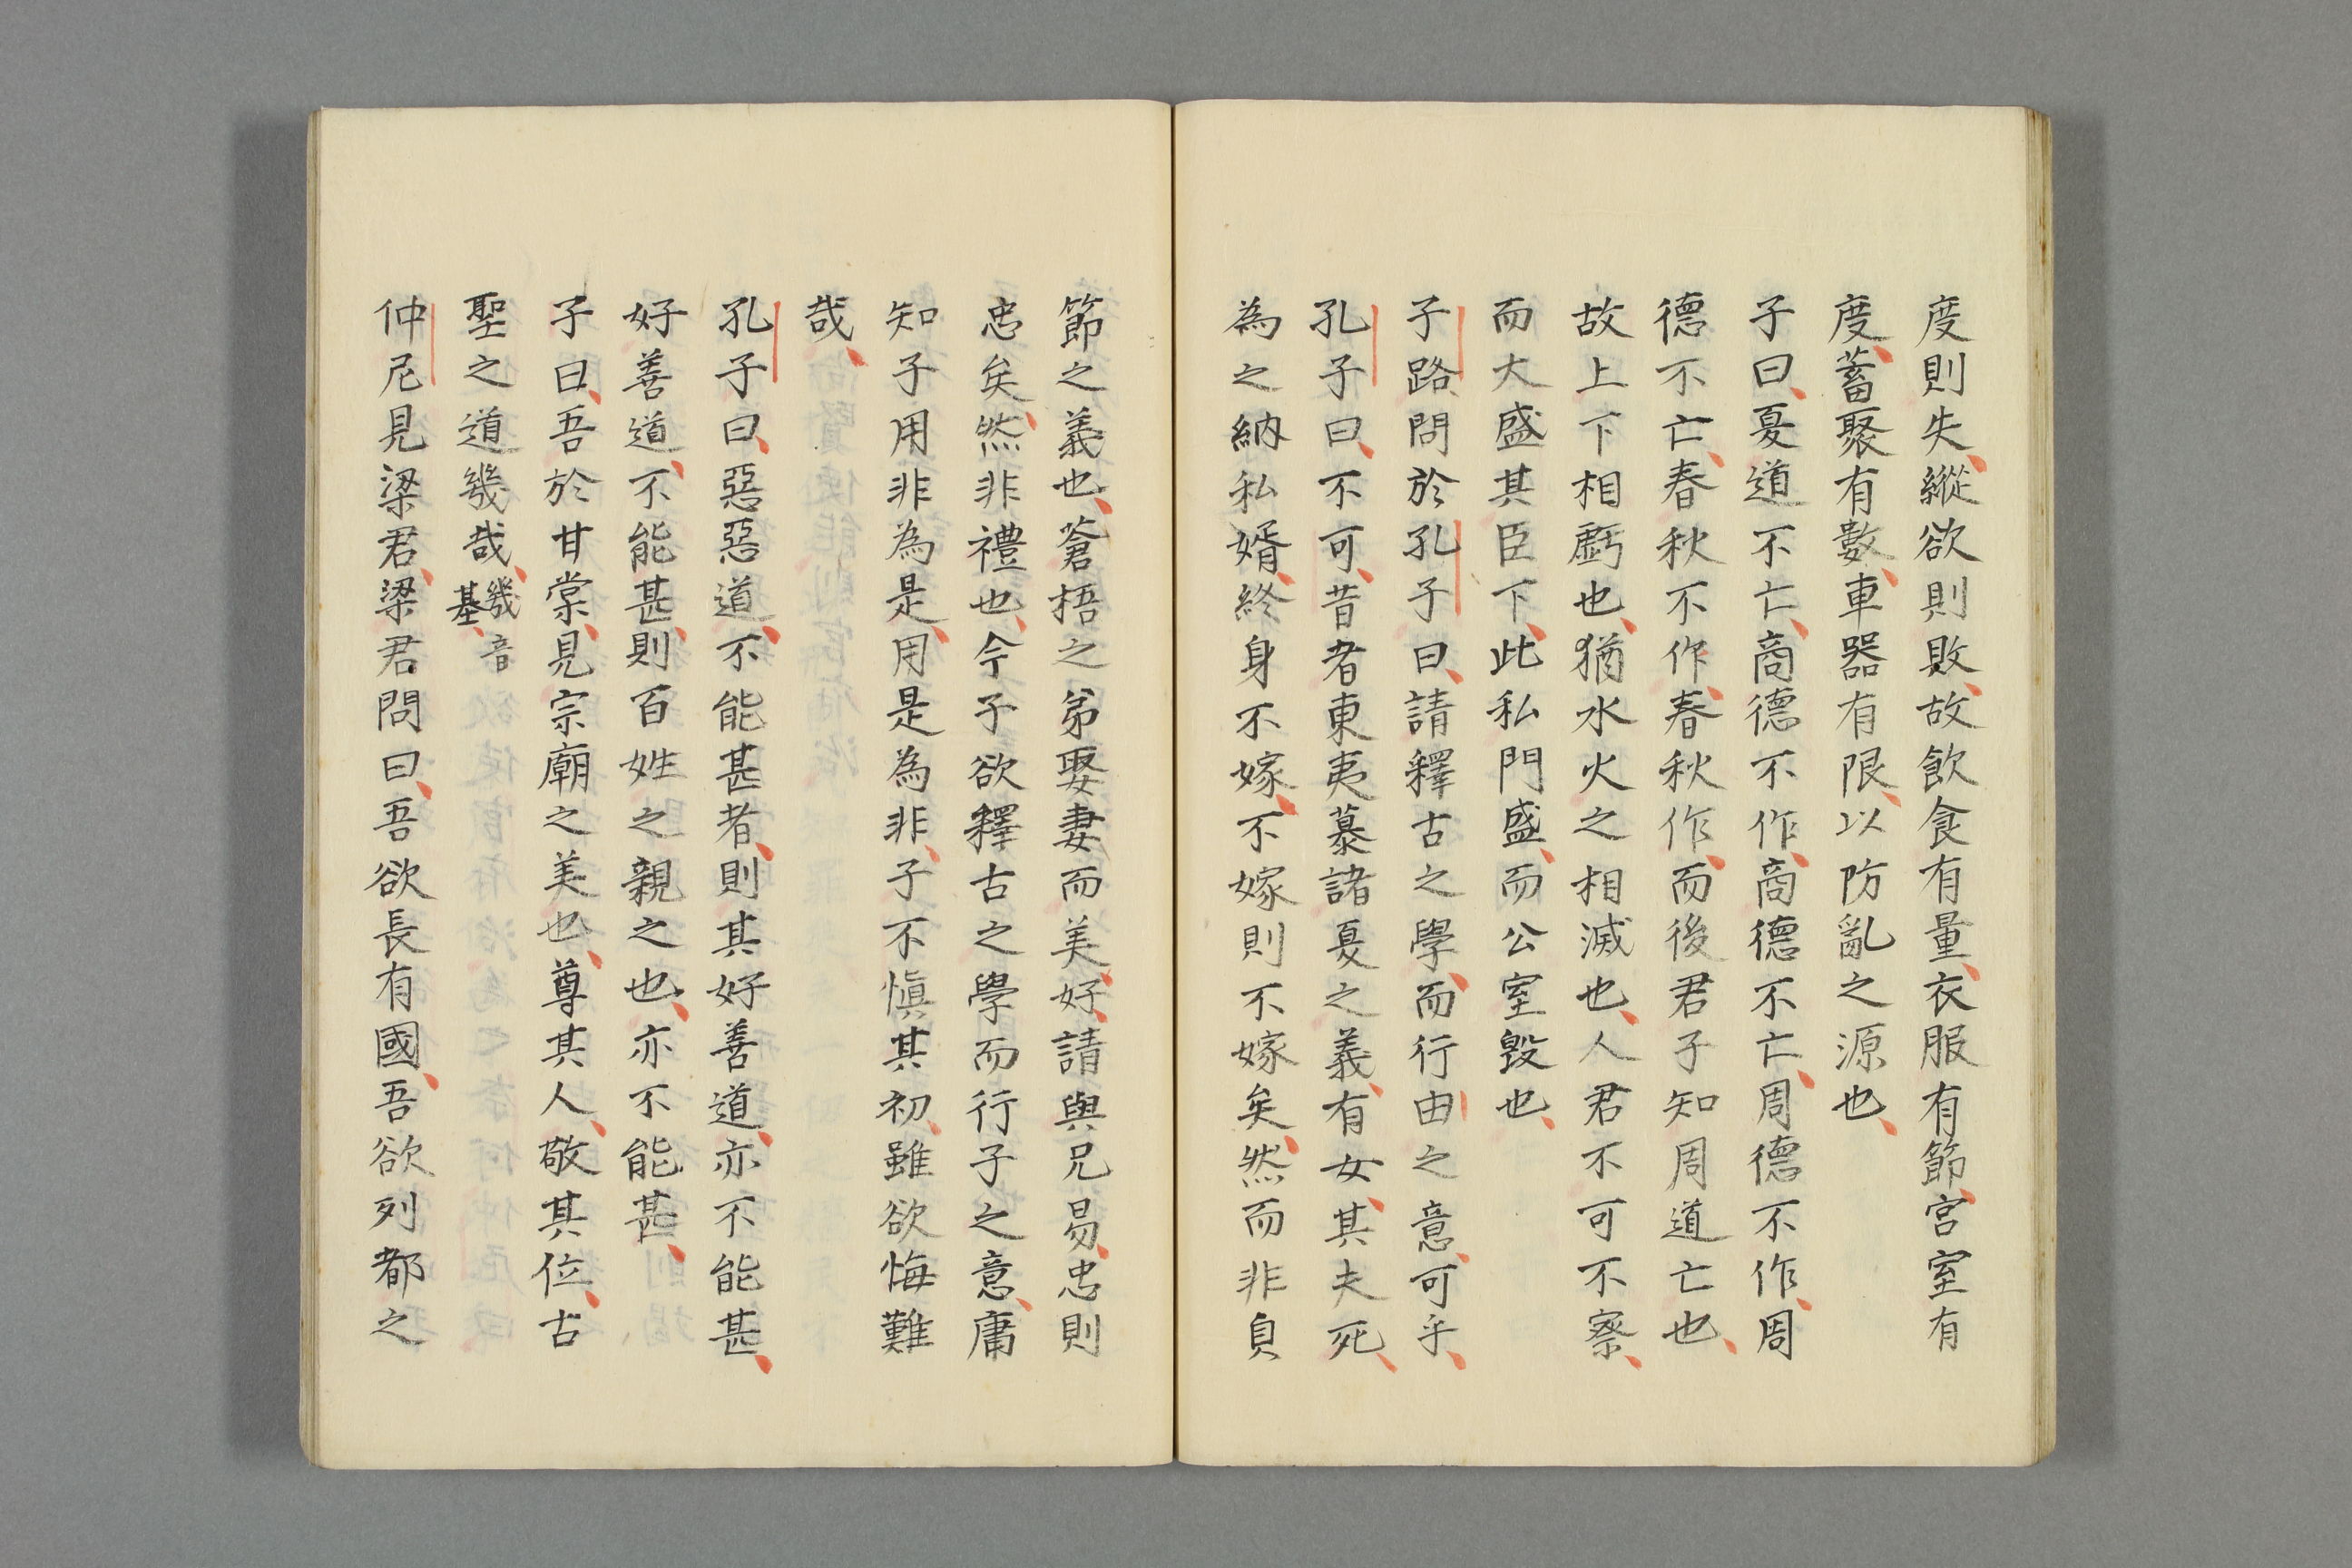 度則失、縱欲則敗、故飲食有量、衣服有節、宮室有
度、蓄聚有數、車器有限、以防亂之源也、
子曰、夏道不亡、商德不作、商德不亡、周德不作、周
德不亡、春秋不作、春秋作、而後君子知周道亡也、
故上下相虧也、猶水火之相滅也、人君不可不察、
而大盛其臣下、此私門盛、而公室毀也、
子路問於孔子曰、請釋古之學、而行由之意、可乎、
孔子曰、不可、昔者東夷慕諸夏之義、有女、其夫死、
為之納私婿、終身不嫁、不嫁則不嫁矣、然而非貞
節之義也、蒼梧之弟娶妻而美好、請與兄易、忠則
忠矣、然非禮也、今子欲釋古之學而行子之意、庸
知子用非為是、用是為非、子不愼其初、雖欲悔難
哉、
孔子曰、惡惡道、不能甚者、則其好善道、亦不能甚、
好善道、不能甚、則百姓之親之也、亦不能甚、
子曰、吾於甘棠、見宗廟之美也、尊其人、敬其位、古
聖之道幾哉、幾音基、
仲尼見梁君、梁君問曰、吾欲長有國、吾欲列都之